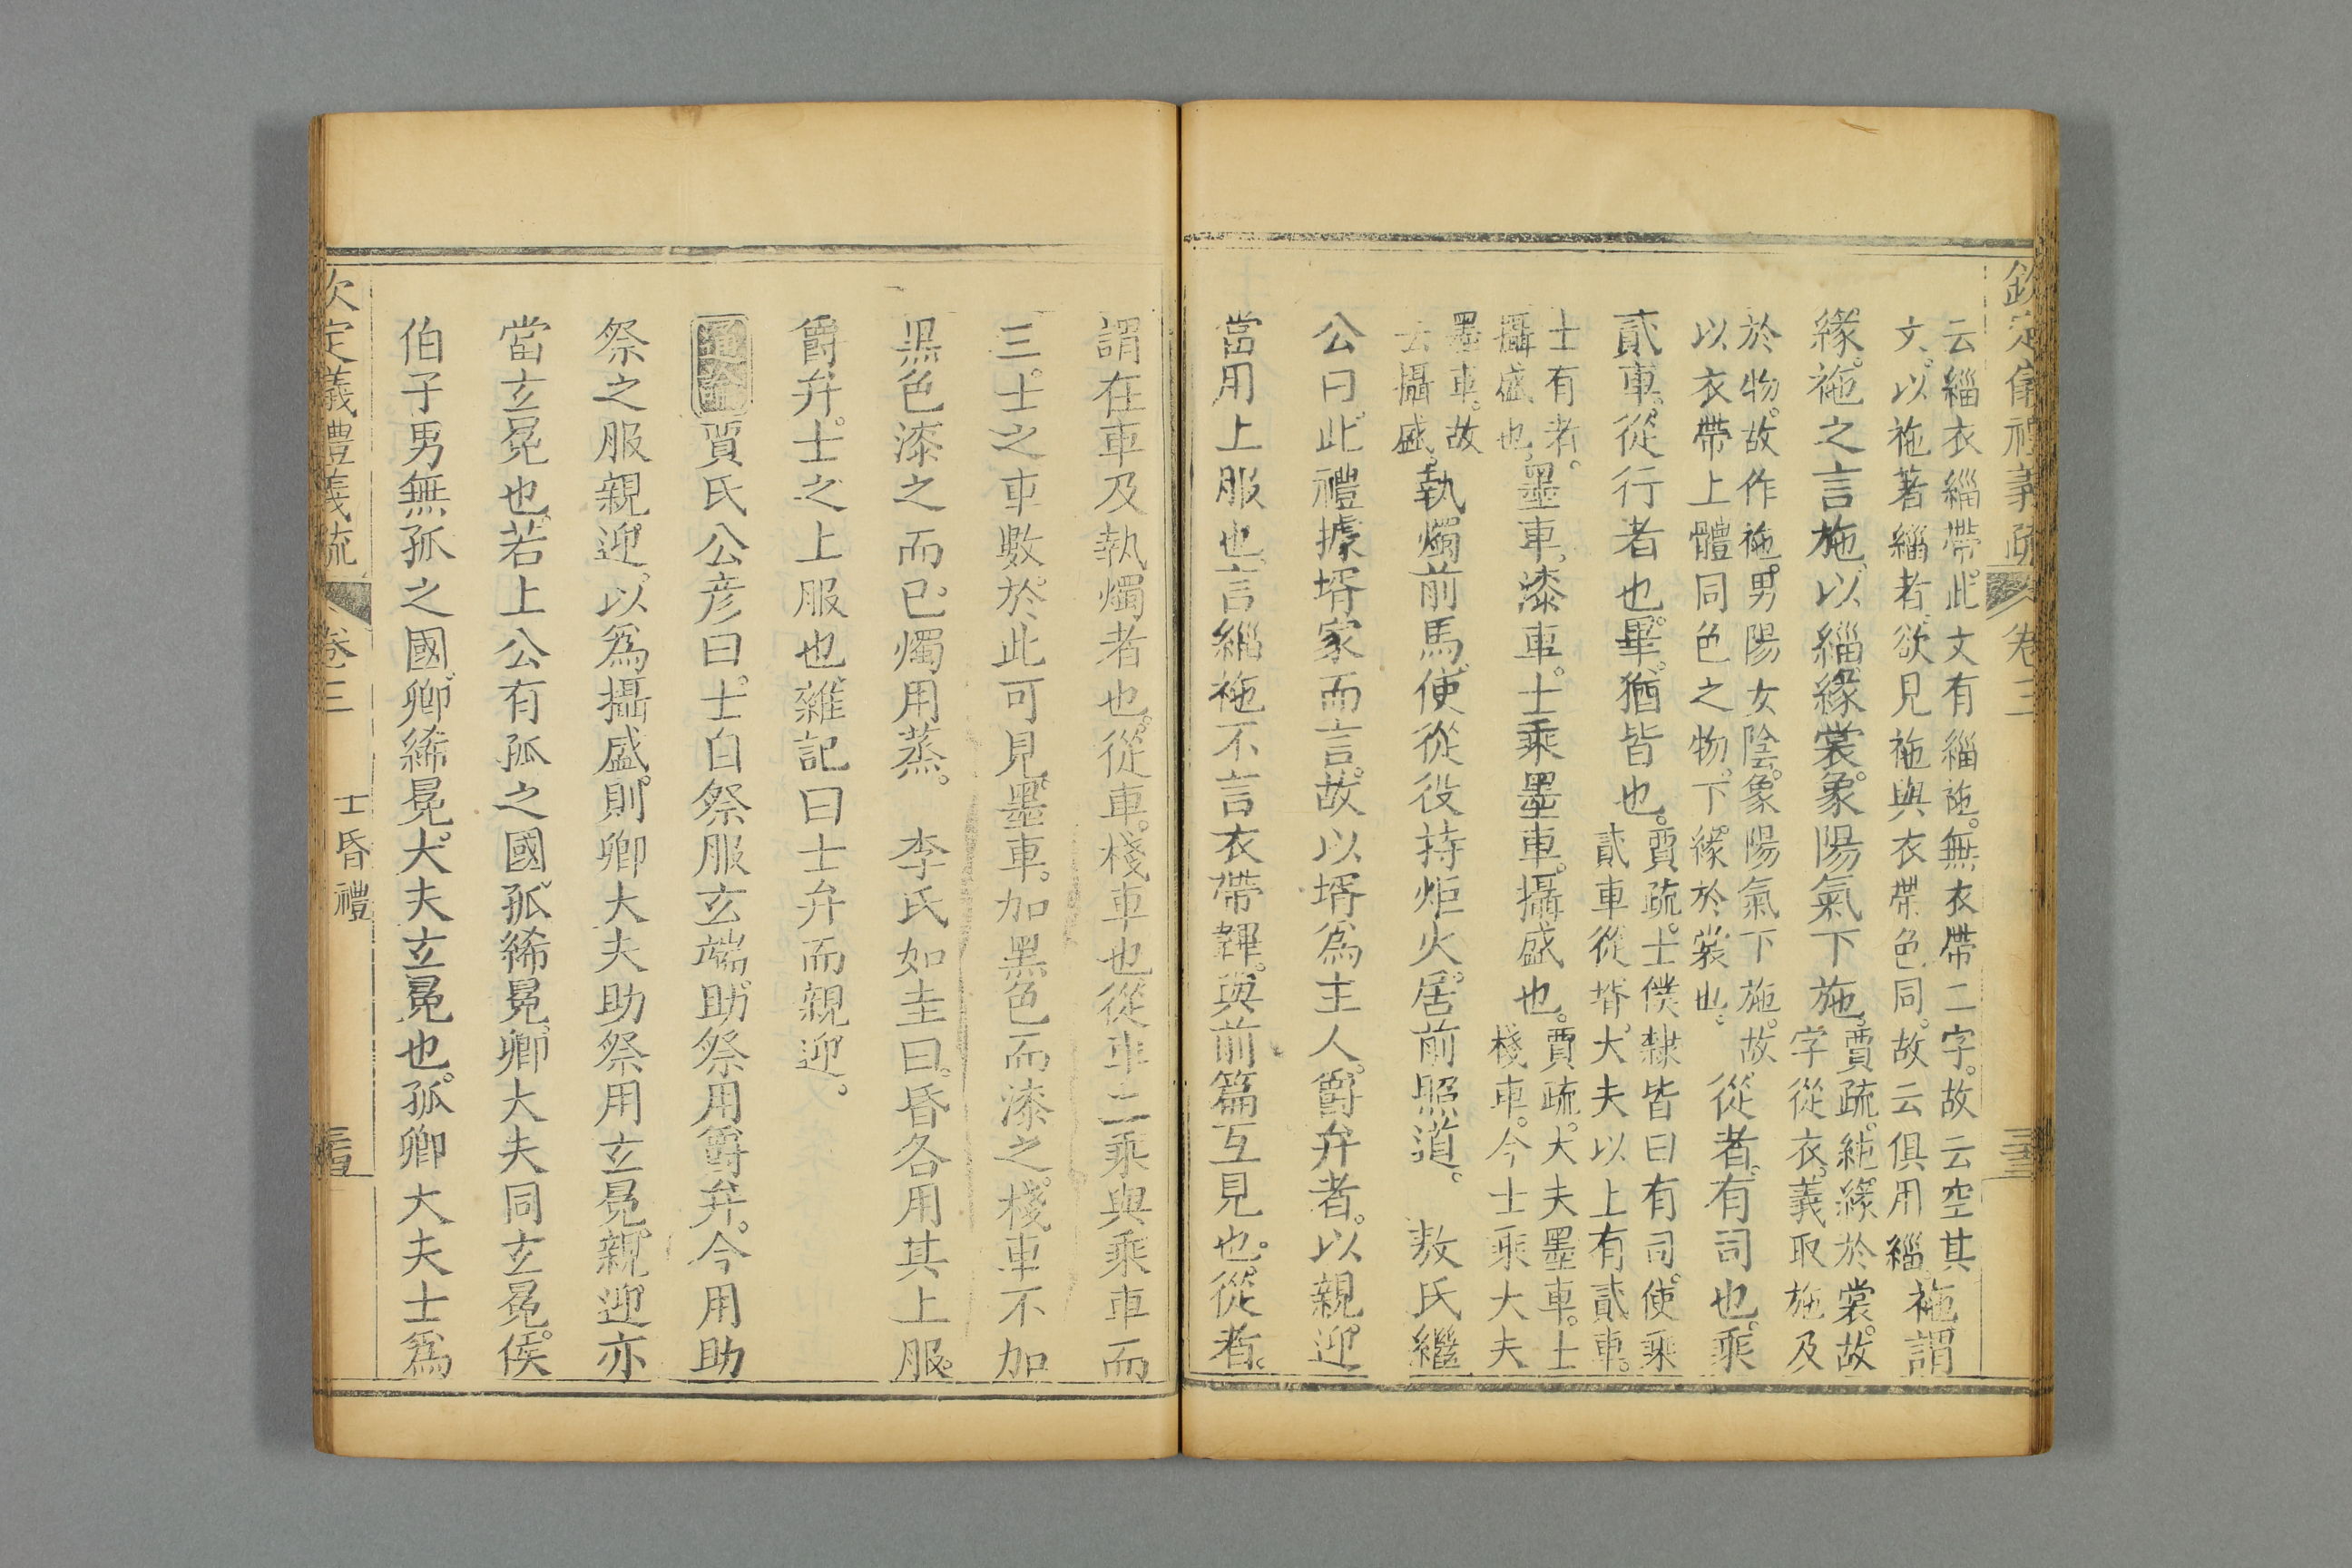 欽定儀禮義疏 卷三
云緇衣緇帶。此文有緇袘。無衣帶二字。故云空其
文。以袘著緇者。欲見袘與衣帶色同。故云俱用緇。
袘謂
緣。袘之言施。以緇緣裳。象陽氣下施。
賈疏。純緣於裳。故
字從衣。義取施及
於物。故作袘。男陽女陰。象陽氣下施。故
以衣帶上體同色之物。下緣於裳也。
從者。有司也。乘
貳車。從行者也。畢。猶皆也。
賈疏。士僕隸皆曰有司。使乘
貳車從壻。大夫以上有貳車。
士有者。
攝盛也。
墨車。漆車。士乘墨車。攝盛也。
賈疏。大夫墨車。士
棧車。今士乘大夫
墨車。故
云攝盛。
執燭前馬。使從役持炬火。居前照道。 敖氏繼
公曰。此禮據壻家而言。故以壻爲主人。爵弁者。以親迎
當用上服也。言緇袘不言衣帶韠。與前篇互見也。從者。
謂在車及執燭者也。從車。棧車也。從車二乘與乘車而
三。士之車數。於此可見。墨車。加黑色而漆之。棧車不加
黑色漆之而已。燭用蒸。 李氏如圭曰。昏各用其上服。
爵弁。士之上服也。雜記曰士弁而親迎。
通論 賈氏公彦曰。士自祭服玄端。助祭用爵弁。今用助
祭之服親迎。以爲攝盛。則卿大夫助祭用玄冕。親迎亦
當玄冕也。若上公有孤之國。孤絺冕。卿大夫同玄冕。侯
伯子男無孤之國。卿絺冕。大夫玄冕也。孤卿大夫士爲
欽定儀禮義疏 卷三 士昏禮